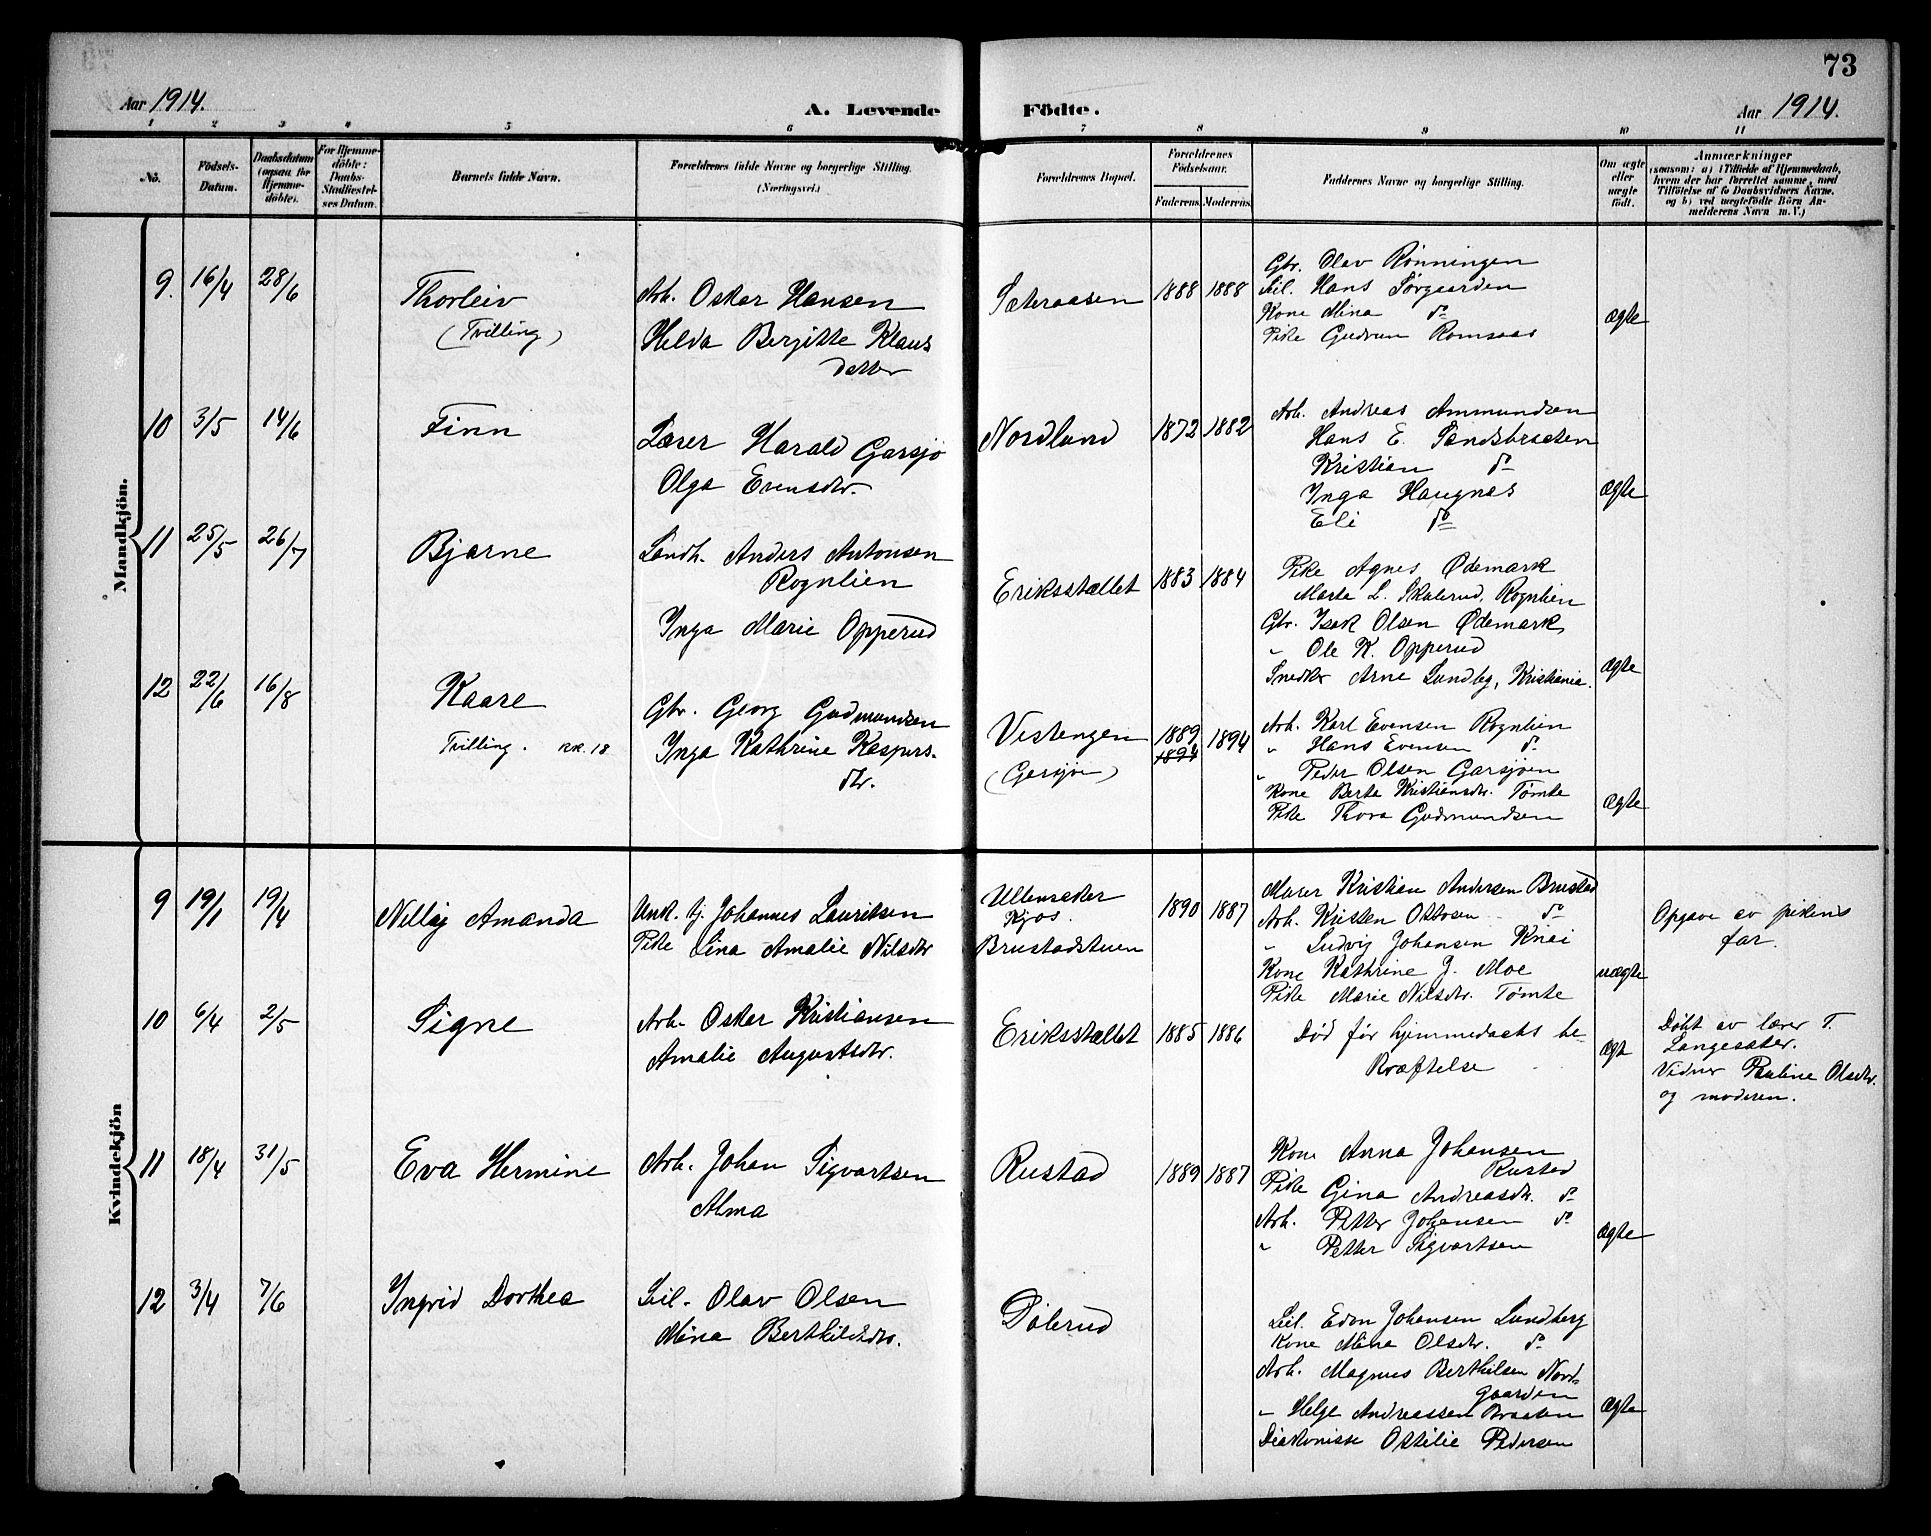 73
Aar 1914.
A. Levende Födte.
Aar 1914.
1 2 3 4 5 6 7 8 9 10 11
No.
Födsels-Datum.
Daabsdatum (ogsaa for Hjemmedöbte).
For Hjemmedöbte: Daabs-Stadfæstelses Datum.
Barnets fulde Navn.
Forældrenes fulde Navne og borgerlige Stilling.
(Næringsvei.)
Forældrenes Bopæl.
Forældrenes Födselsaar.
Faderens. Moderens.
Faddernes Navne og borgerlige Stilling.
Om ægte eller uægte födt.
Anmærkninger
(saasom: a) i Tilfælde af Hjemmedaab, hvem der har forrettet samme, med Tilföielse af to Daabsvidners Navne, og b) ved uægtefödte Börn Anmelderens Navn m. V.)
Mandkjön.
9. 16/4 28/6
Thorleiv
(Tvilling)
Arb. Oskar Hansen
Helda Bergitte Klaus
datter
Sæteraasen
1888 1888
Gbr. Olav Rønningen
Sil. Hans Sørgaarden
Kone Mina do
Pike Gudrun Romsaas
ægte
10 3/5 14/6
Finn
Lærer Harald Garsjø
Olga Evensdtr.
Nordlund
1872 1882
Arb. Andreas Ammundsen
Hans E. Sandsbraaten
Kristian do
Inga Haugnæs
Eli do
ægte
11 25/5 26/7
Bjarne
Landh. Anders Antonsen
Rognlien
Inga Marie Opperud
Eriksstallet
1883 1884
Pike Agnes Ødemark
Marta L. Skulerud, Rognlien
Gbr. Isak Olsen Ødemark,
" Ole K. Opperud
Snedker Arne Lundby, Kristiania.
ægte
12 22/6 16/8
Kaare
Tvilling. kk. 18
Gbr. Georg Gudmundsen
Inga Kathrine Kaspers-
dtr.
Vestengen
(Garsjøn)
1889 1894
1894
Arb. Karl Evensen Rognlien
" Hans Evensen do
" Peder Olsen Garsjøen
Kone Berta Kristiansdtr. Tømte
Pike Thora Gudmundsen
ægte
Kvindekjön
9 19/1 19/4
Nelly Amanda
Unk. tj. Johannes Lauritsen
Pike Lina Amalie Nilsdtr
Ullensaker
Kjos.
Brustadstuen
1890 1887
Murer Kristian Andersen Brustad
Arb. Kristen Ottosen do
" Ludvig Johansen Knai
Kone Kathrine J. Moe
Pike Marie Nilsdtr. Tømte
uægte
Opgave av pikens
far.
10 6/4 2/5
Signe
Arb. Oskar Kristiansen
Amalie Augustsdtr.
Eriksstallet
1885 1886
Død før hjemmedaabs be-
kræftelse
ægt
Døbt av lærer T.
Langesæter.
Vidner Pauline Olsdtr.
og moderen.
11 18/4 31/5
Eva Hermine
Arb. Johan Sigvartsen
Alma
Rustad
1889 1887
Kone Anna Johansen
Rustad
Pike Gina Andreasdtr. do
Arb. Petter Johansen do
" Petter Sigvartsen
ægte
12 3/4 7/6
Ingrid Dorthea
Sil. Olav Olsen
Mina Berthilsdtr.
Dølerud
Sil. Edon Johansen Lundberg
Kone Mina Olsdtr. do
Arb. Magnus Berthilsen Nord-
gaarden
" Helge Andreassen Braaten
Diakonisse Ottilie Pedersen
ægte